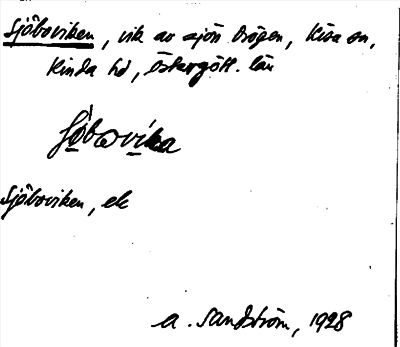 Sjöboviken, vik av sjön Drögen, Kisa sn,
Kinda hd, Östergötl. län
Sjöboviken, ek
A. Sandström, 1928